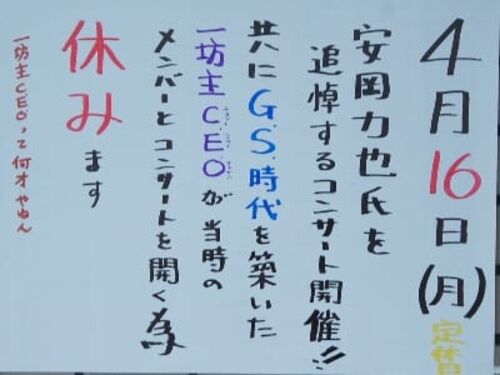 4月16日(月)
安岡力也氏を
追悼するコンサート開催!!
共にG.S.時代を築いた
一坊主C.E.Oが当時の
メンバーとコンサートを開く為
休みます
一坊主CEOって何才やねん